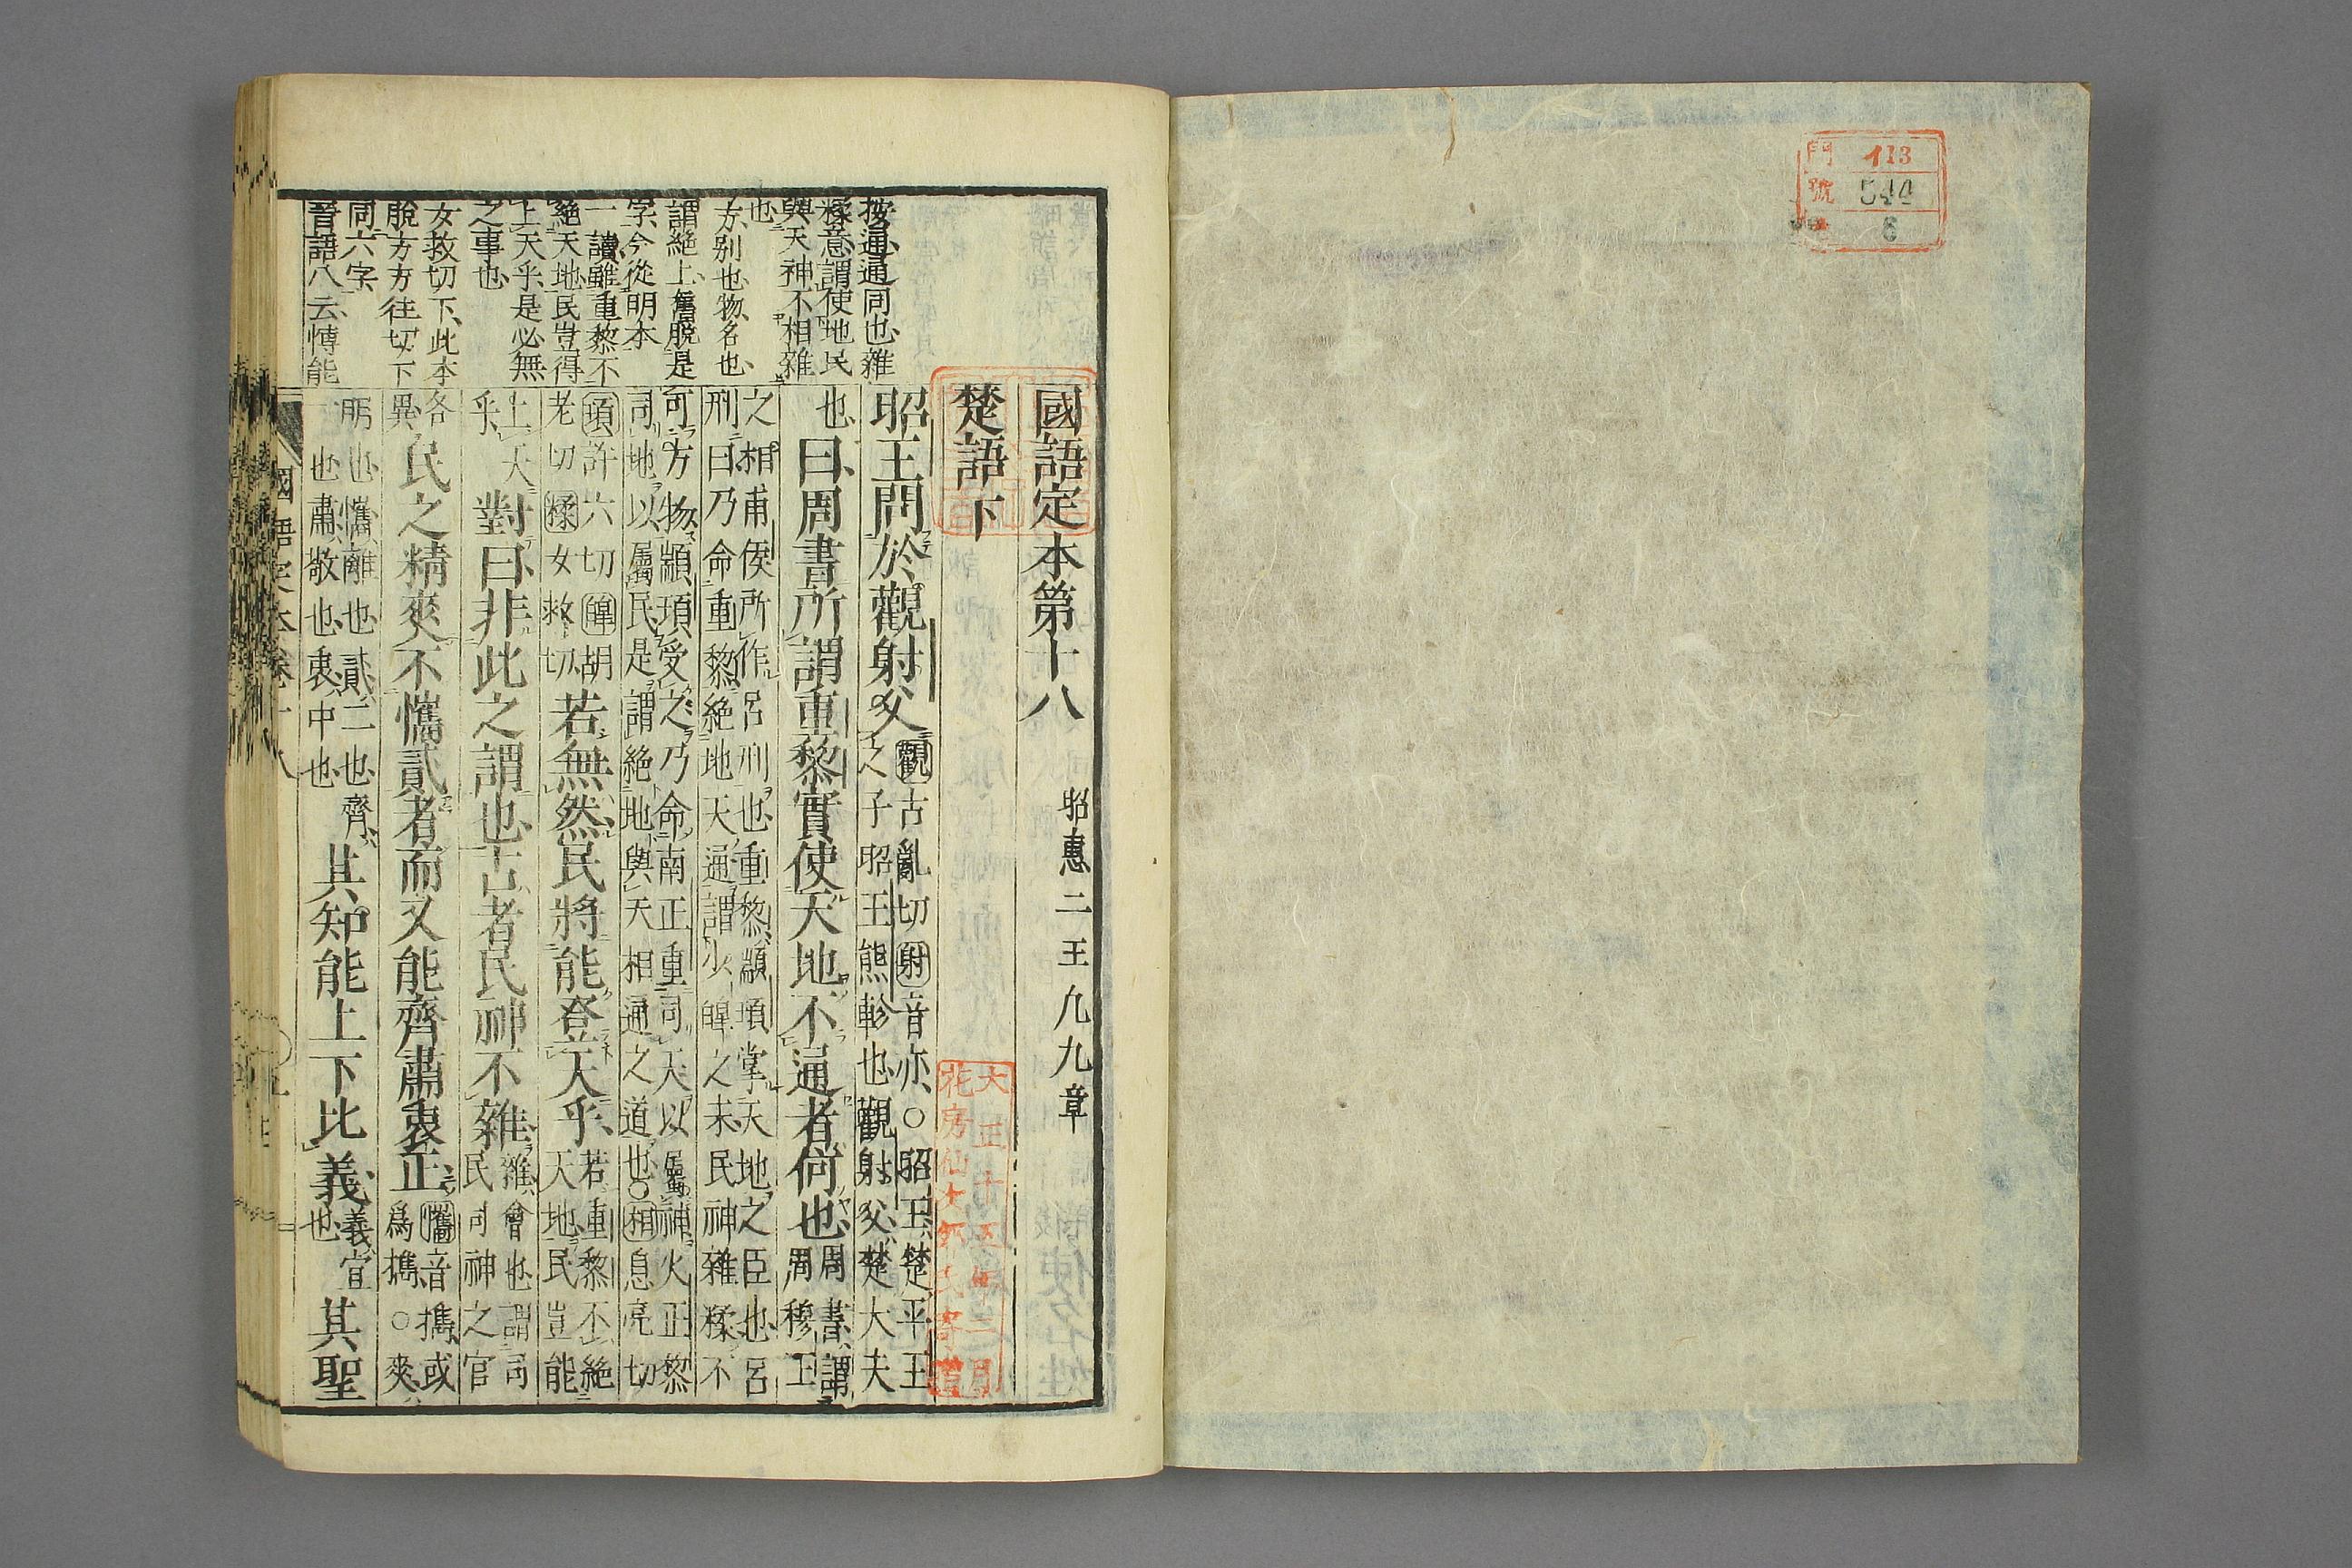 門 113
號 544
卷 6
國語定本第十八
昭惠二王凡九章
楚語下
昭王問於觀射父觀古亂切射音亦○昭王楚平王
之子昭王熊軫也觀射父楚大夫
也曰周書所謂重黎實使天地不通者何也周書謂
周穆王
之相甫侯所作呂刑也重黎顓頊掌天地之臣也呂
刑曰乃命重黎絕地天通謂少皥之末民神雜糅不
可方物顓頊受之乃命南正重司天以屬神火正黎
司地以屬民是謂絕地與天相通之道也○相息亮切
頊許六切皥胡
老切糅女救切若無然民將能登天乎若重黎不絕
天地民豈能
上天
乎對曰非此之謂也古者民神不雜雜會也謂司
民司神之官
各
異民之精爽不懼貳者而又能齊肅衷正懼音攜或
爲攜○爽
明也攜離也貳二也齊
一也肅敬也衷中也其知能上下比義義宜
也其聖
按通通同也雜
糅意謂使地民
與天神不相雜
也
方別也物名也
謂絕上舊脫是
字今從明本
一讀雖重黎不
絕天地民豈得
上天乎是必無
之事也
女救切下此本
脫方方往切下
同六字
晉語八云愽能
大正十五年一月
花房仙次郎氏寄贈
國語定本卷十八